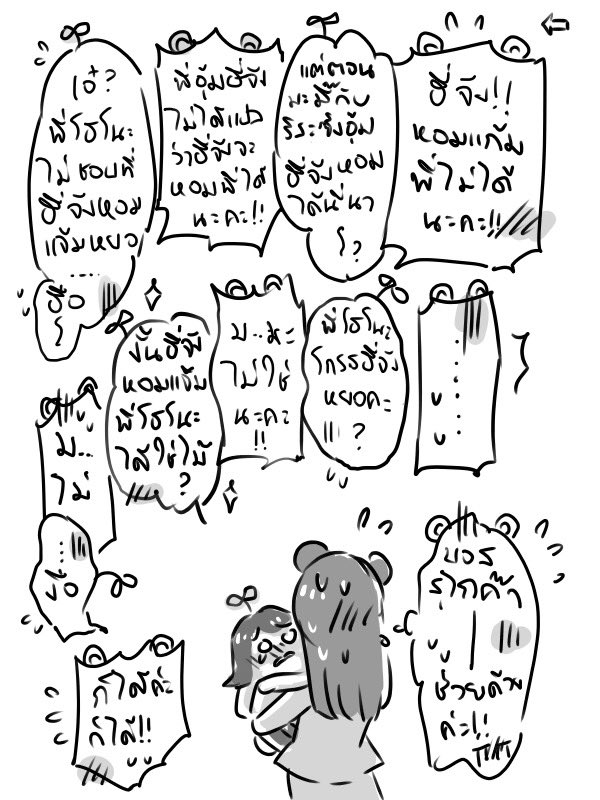 ฮี่จัง!!
หอมแก้ม
พี่ไม่ได้
นะคะ!!
แต่ตอน
มะมี๊กับ
ริระเซ็งอุ้ม
ฮี่จังหอม
ได้นี่นา
?
พี่อุ้มฮี่จัง
ไม่ได้แปล
ว่าฮี่จังจะ
หอมพี่ได้
นะคะ!!
เอ๋?
พี่โฮโนะ
ไม่ชอบที่
ฮี่จังหอม
แก้มหยอ
.....
ฮือ
......
พี่โฮโนะ
โกรธฮี่จัง
หยอคะ
?
ม...มะ
ไม่ใช่
นะคะ
!!
งั้นฮี่จัง
หอมแก้ม
พี่โฮโนะ
ได้ใช่ไม้
?
ม...
ไม่
....
ฮือ
บอส
รุไกค๊า
ช่วยด้วย
ค่ะ!!
TMT
ก็ได้ค่ะ
ก็ได้!!